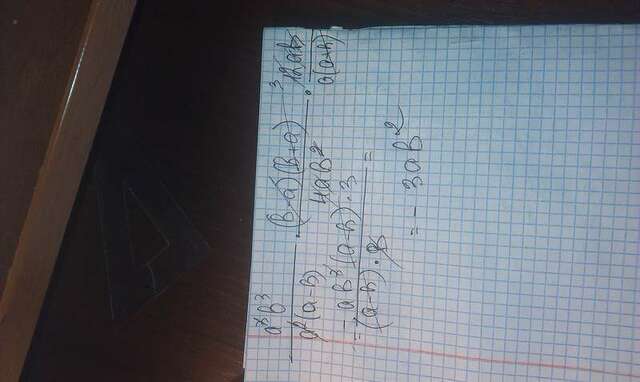 a²b³/a²(a-b) · (b-a)(b+a)/4ab² · 12ab/a(a+b)
= - ab²(a-b)·3/(a-b)·b =
= - 3ab²